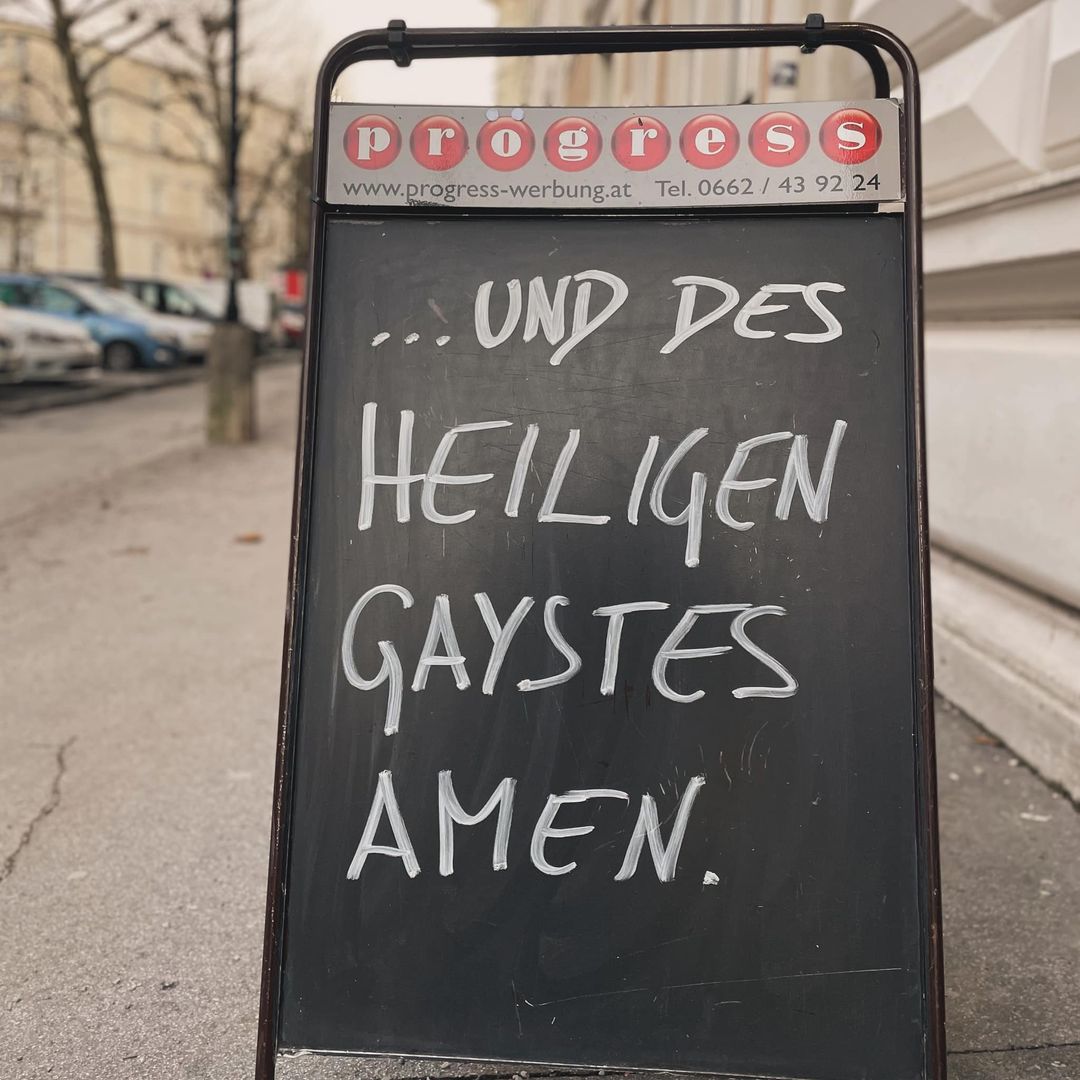 progress
www.progress-werbung.at Tel. 0662 / 43 92 24
...UND DES
HEILIGEN
GAYSTES
AMEN.